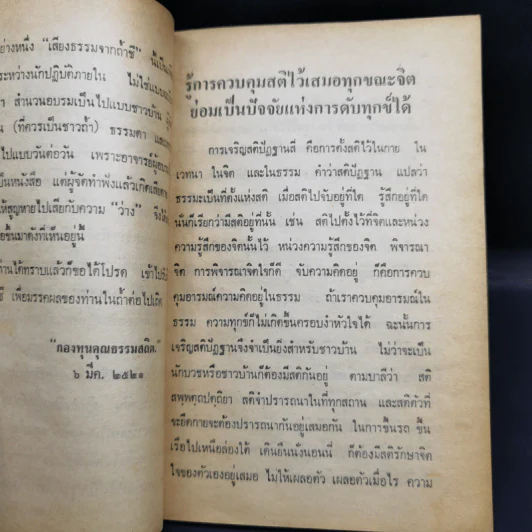 ย่างหนึ่ง "เสียงธรรมจากถ้ำชี" นี้เป็น
ระหว่างนักปฏิบัติภายใน ไม่ใช่แบบ
า สำนวนอบรมเป็นไปแบบชาวบ้าน
น (ที่ควรเป็นชาวถ้ำ) ธรรมดา และ
ไปแบบวันต่อวัน เพราะอาจารย์ผู้อบ
ป็นหนังสือ แต่ผู้จัดทำฟังแล้วเกิด
ให้สูญหายไปเสียกับความ "ว่าง" จึงได้
อขึ้นมาดังที่เห็นอยู่นี้
านได้ทราบแล้วก็ขอได้โปรด เข้าไป
ชี เพื่อมรรคผลของท่านในถ้ำต่อไปเถิด
"กองทุนคุณธรรมสถิต"
๖ มีค. ๒๕๒๑
รู้การควบคุมสติไว้เสมอทุกขณะจิต
ย่อมเป็นปัจจัยแห่งการดับทุกข์ได้
การเจริญสติปัฏฐานสี่ คือการตั้งสติไว้ในกาย ใน
เวทนา ในจิต และในธรรม คำว่าสติปัฏฐาน แปลว่า
ธรรมะเป็นที่ตั้งแห่งสติ เมื่อสติไปจับอยู่ที่ใด รู้สึกอยู่ที่ใด
นั่นก็เรียกว่ามีสติอยู่ที่นั้น เช่น สติไปตั้งไว้ที่จิตและหน่วง
ความรู้สึกของจิตนั้นไว้ หน่วงความรู้สึกของจิต พิจารณา
จิต การพิจารณาจิตใจก็ดี จับความคิดอยู่ ก็คือการควบ
คุมอารมณ์ความคิดอยู่ในธรรม ถ้าเราควบคุมอารมณ์ใน
ธรรม ความทุกข์ก็ไม่เกิดขึ้นครอบงำหัวใจได้ ฉะนั้นการ
เจริญสติปัฏฐานจึงจำเป็นยิ่งสำหรับชาวบ้าน ไม่ว่าจะเป็น
นักบวชหรือชาวบ้านก็ต้องมีสติกันอยู่ ตามบาลีว่า สติ
สพฺพตฺถปตฺถิยา สติจำปรารถนาในที่ทุกสถาน และสติตัวที่
จะยึดกายจะต้องปรารถนากันอยู่เสมอกัน ในการขึ้นรถ ขึ้น
เรือไปเหนือล่องใต้ เดินยืนนั่งนอนนี่ ก็ต้องมีสติรักษาจิต
ใจของตัวเองอยู่เสมอ ไม่ให้เผลอตัว เผลอตัวเมื่อไร ความ